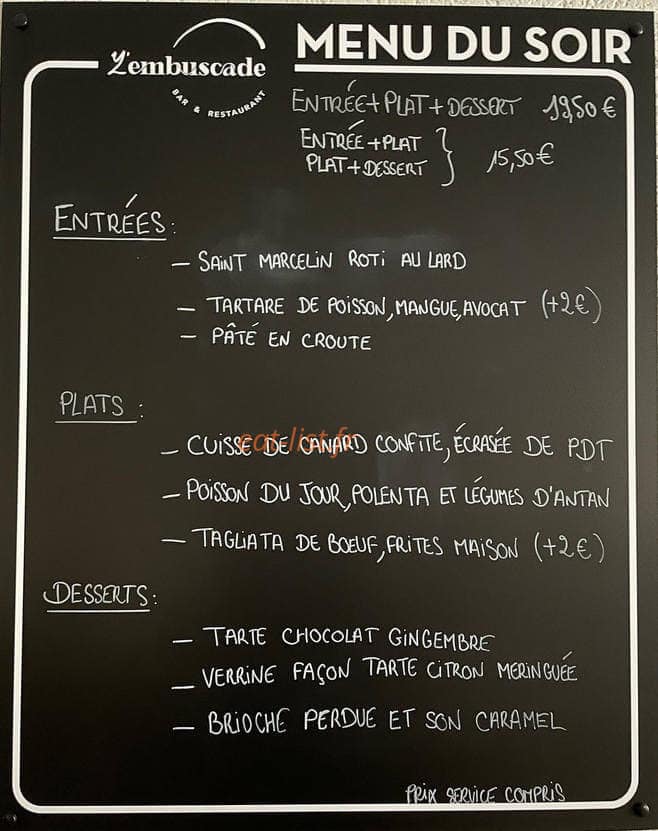 L'embuscade
BAR & RESTAURANT
MENU DU SOIR
ENTRÉE+PLAT+DESSERT 19,50€
ENTRÉE+PLAT
PLAT+DESSERT } 15,50€
ENTRÉES:
- SAINT MARCELIN ROTI AU LARD
- TARTARE DE POISSON, MANGUE, AVOCAT (+2€)
- PÂTÉ EN CROUTE
PLATS :
- CUISSE DE CANARD CONFITE, ÉCRASÉE DE PDT
eat-list.fr
- POISSON DU JOUR, POLENTA ET LÉGUMES D'ANTAN
- TAGLIATA DE BŒUF, FRITES MAISON (+2€)
DESSERTS:
- TARTE CHOCOLAT GINGEMBRE
- VERRINE FAÇON TARTE CITRON MERINGUÉE
- BRIOCHE PERDUE ET SON CARAMEL
PRIX SERVICE COMPRIS